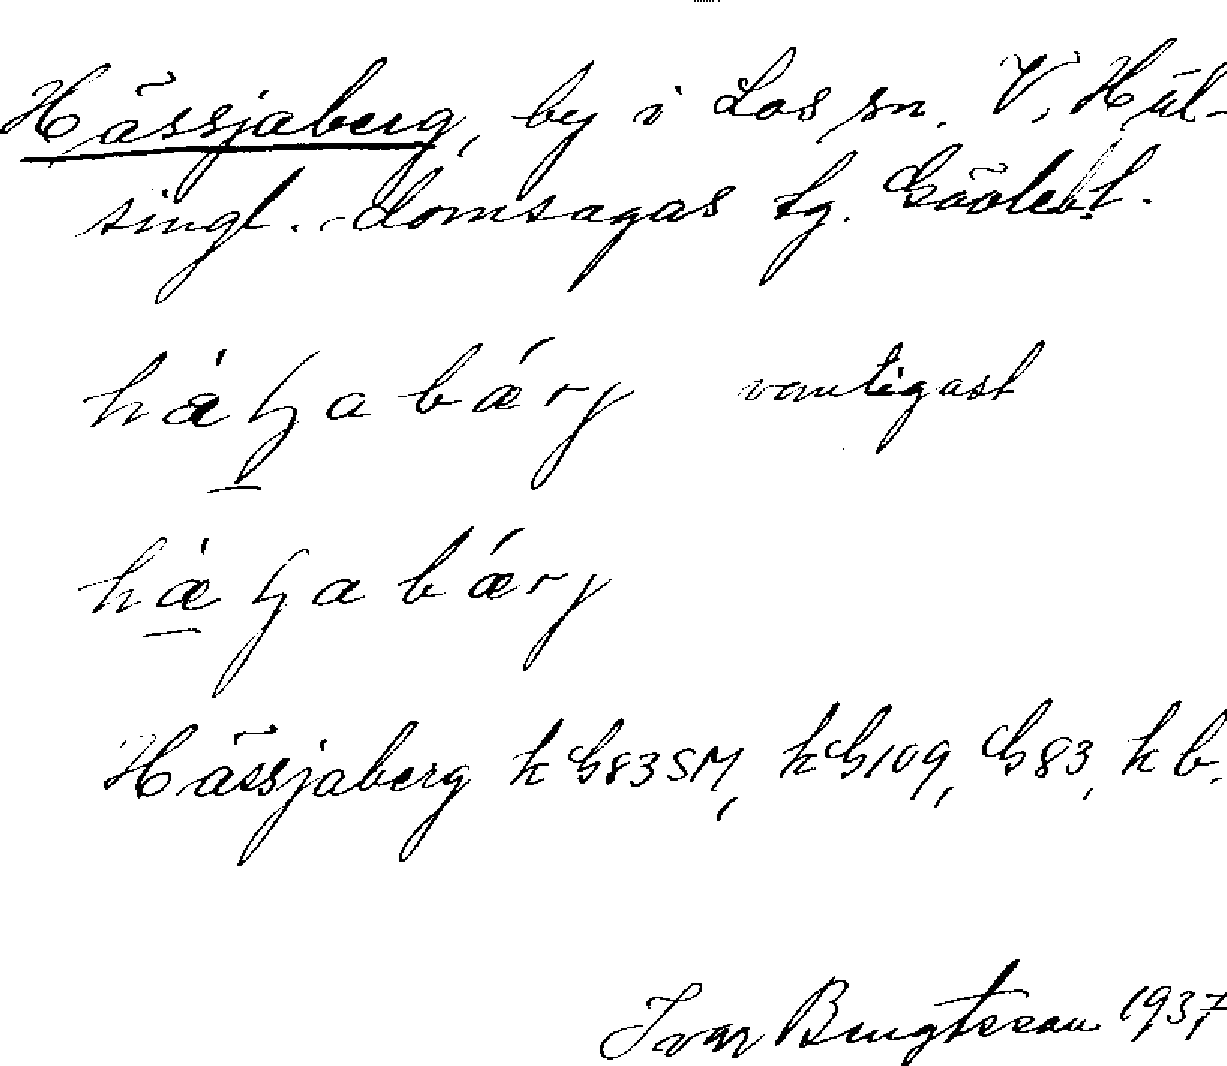 Hässjaberg, by i Los sn, V. Häl-
singl. domsagas tg. Gävlebl.
hæ̀ꜧabǽrj vanligast
hæ̀ꜧabǽrj
Hässjaberg k G83SM, kG109, G83, kb.
Ivar Bengtsson 1937